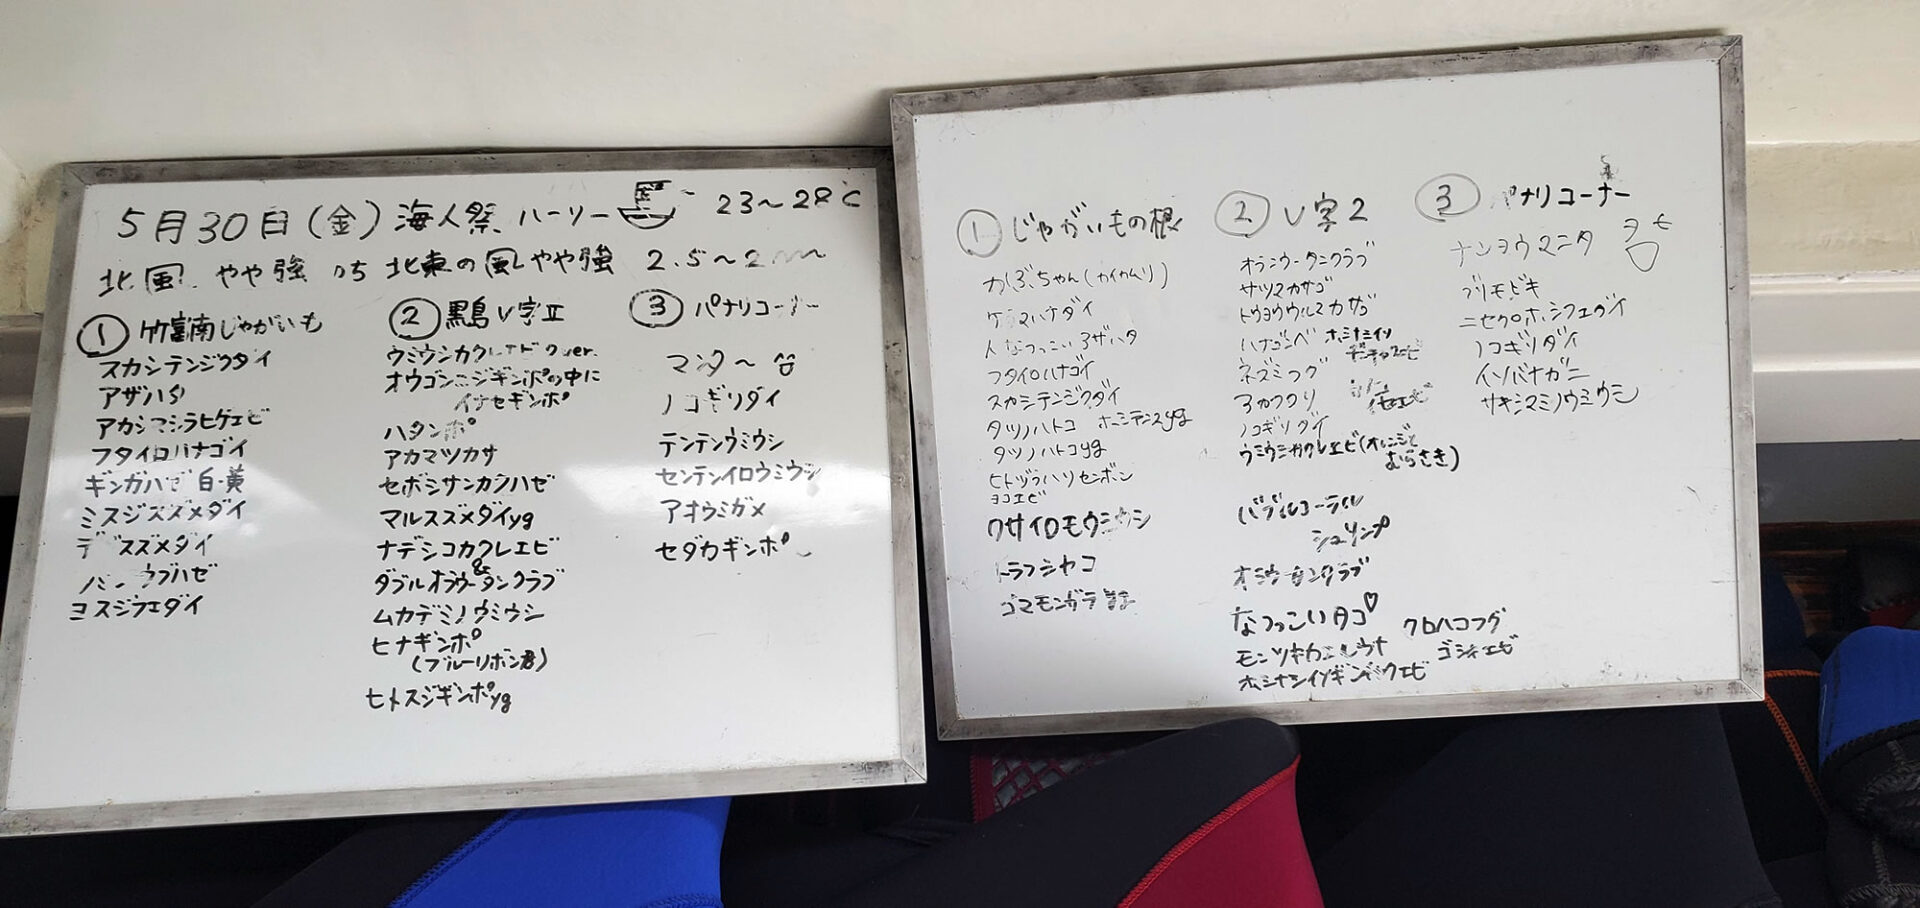 5月30日(金) 海人祭 ハーリー 23〜28℃
北風 やや強 のち 北東の風 やや強 2.5〜2
① 竹富南じゃがいも
スカシテンジクダイ
アザハタ
アカシマシラヒゲエビ
フタイロハナゴイ
ギンガハゼ 白・黄
ミスジスズメダイ
デバスズメダイ
ヨスジフエダイ
② 黒島V字Ⅱ
ウミウシカクレエビ ver.
オウゴンニジギンポの中に
イナセギンポ
ハタンポ
アカマツカサ
セボシサンカクハゼ
マルスズメダイyg
ナデシコカクレエビ
&
ダブルオラウータンクラブ
ムカデミノウミウシ
ヒナギンポ
(ブルーリボン君)
ヒトスジギンポyg
③ パナリコーナー
マンタ〜
ノコギリダイ
テンテンウミウシ
センテンイロウミウシ
アオウミガメ
セダカギンポ
① じゃがいもの根
かぶちゃん(カイカムリ)
ケラマハナダイ
人なつっこいアザハタ
フタイロハナゴイ
スカシテンジクダイ
タツノハトコ ホシテンスyg
タツノハトコyg
ヒトヅラハリセンボン
ヨコエビ
クサイロモウミウシ
トラフシャコ
ゴマモンガラ
② V字2
オランウータンクラブ
サツマカサゴ
トウヨウウルマカサゴ
ハナゴンベ ホシナシイソ
ギンチャクエビ
ネズミフグ
ノコギリダイ
ウミウシカクレエビ(オレンジと
むらさき)
バブルコーラル
シュリンプ
オラウータンクラブ
なつっこいタコ♡ クロハコフグ
モンツキカエルウオ ゴシキエビ
ホシナシイソギンチャクエビ
③ パナリコーナー
ナンヨウマンタ
ブリモドキ
ニセクロホシフエダイ
ノコギリダイ
イソバナガニ
サキシマミノウミウシ